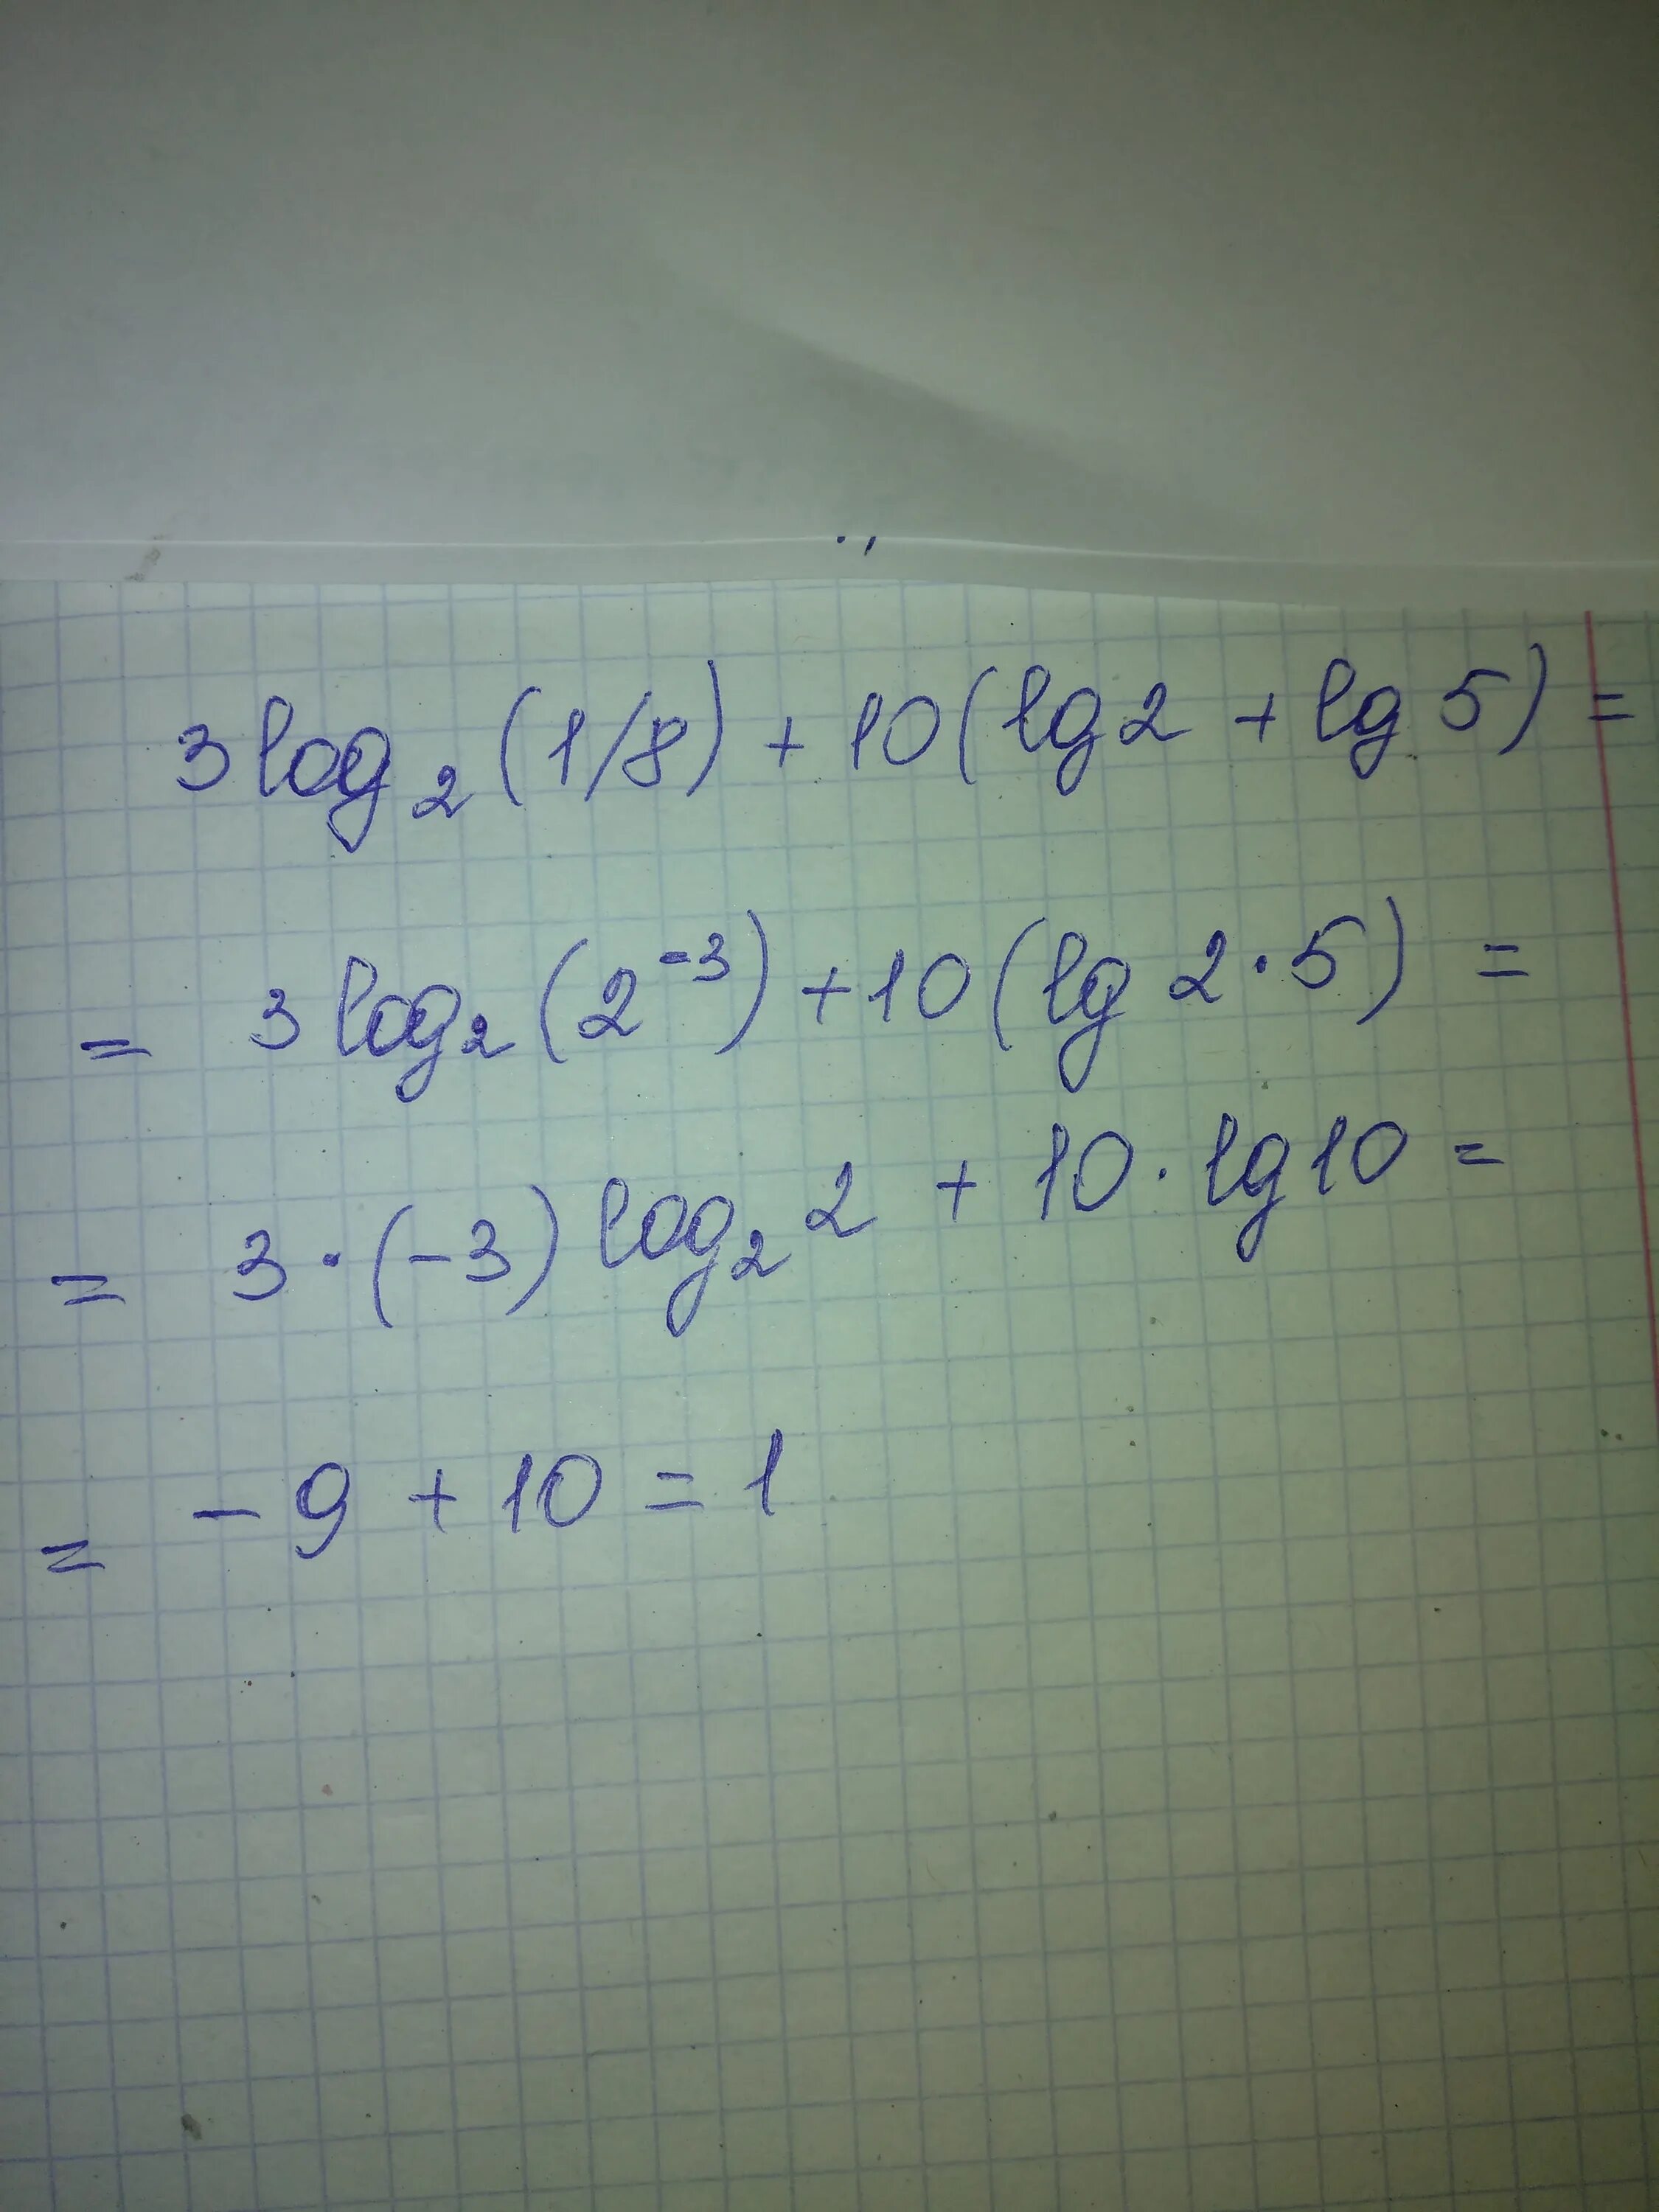 3 log₂ (1/8) + 10 (lg 2 + lg 5) =
= 3 log₂ (2⁻³) + 10 (lg 2 · 5) =
= 3 · (-3) log₂ 2 + 10 · lg 10 =
= - 9 + 10 = 1